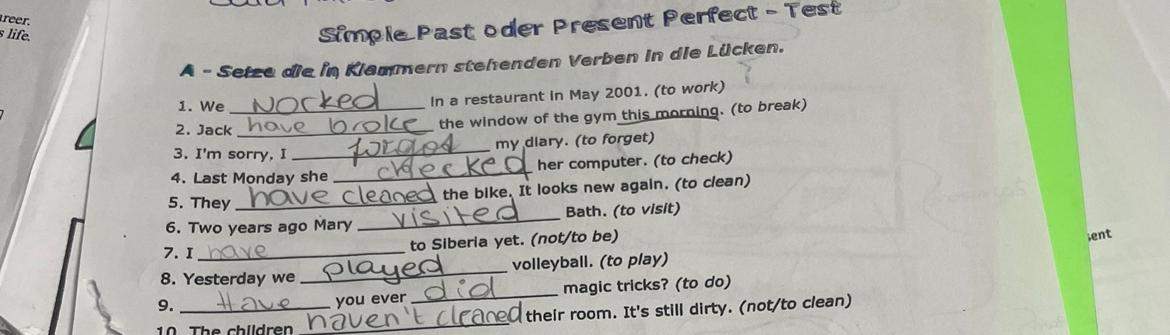 areer.
s life.
Simple Past oder Present Perfect - Test
A - Setze die in Klammern stehenden Verben in die Lücken.
1. We Worked in a restaurant in May 2001. (to work)
2. Jack have broke the window of the gym this morning. (to break)
3. I'm sorry, I forgot my diary. (to forget)
4. Last Monday she checked her computer. (to check)
5. They have cleaned the bike. It looks new again. (to clean)
6. Two years ago Mary visited Bath. (to visit)
7. I have to Siberia yet. (not/to be)
8. Yesterday we played volleyball. (to play)
9. Have you ever did magic tricks? (to do)
10. The children haven't cleaned their room. It's still dirty. (not/to clean)
sent